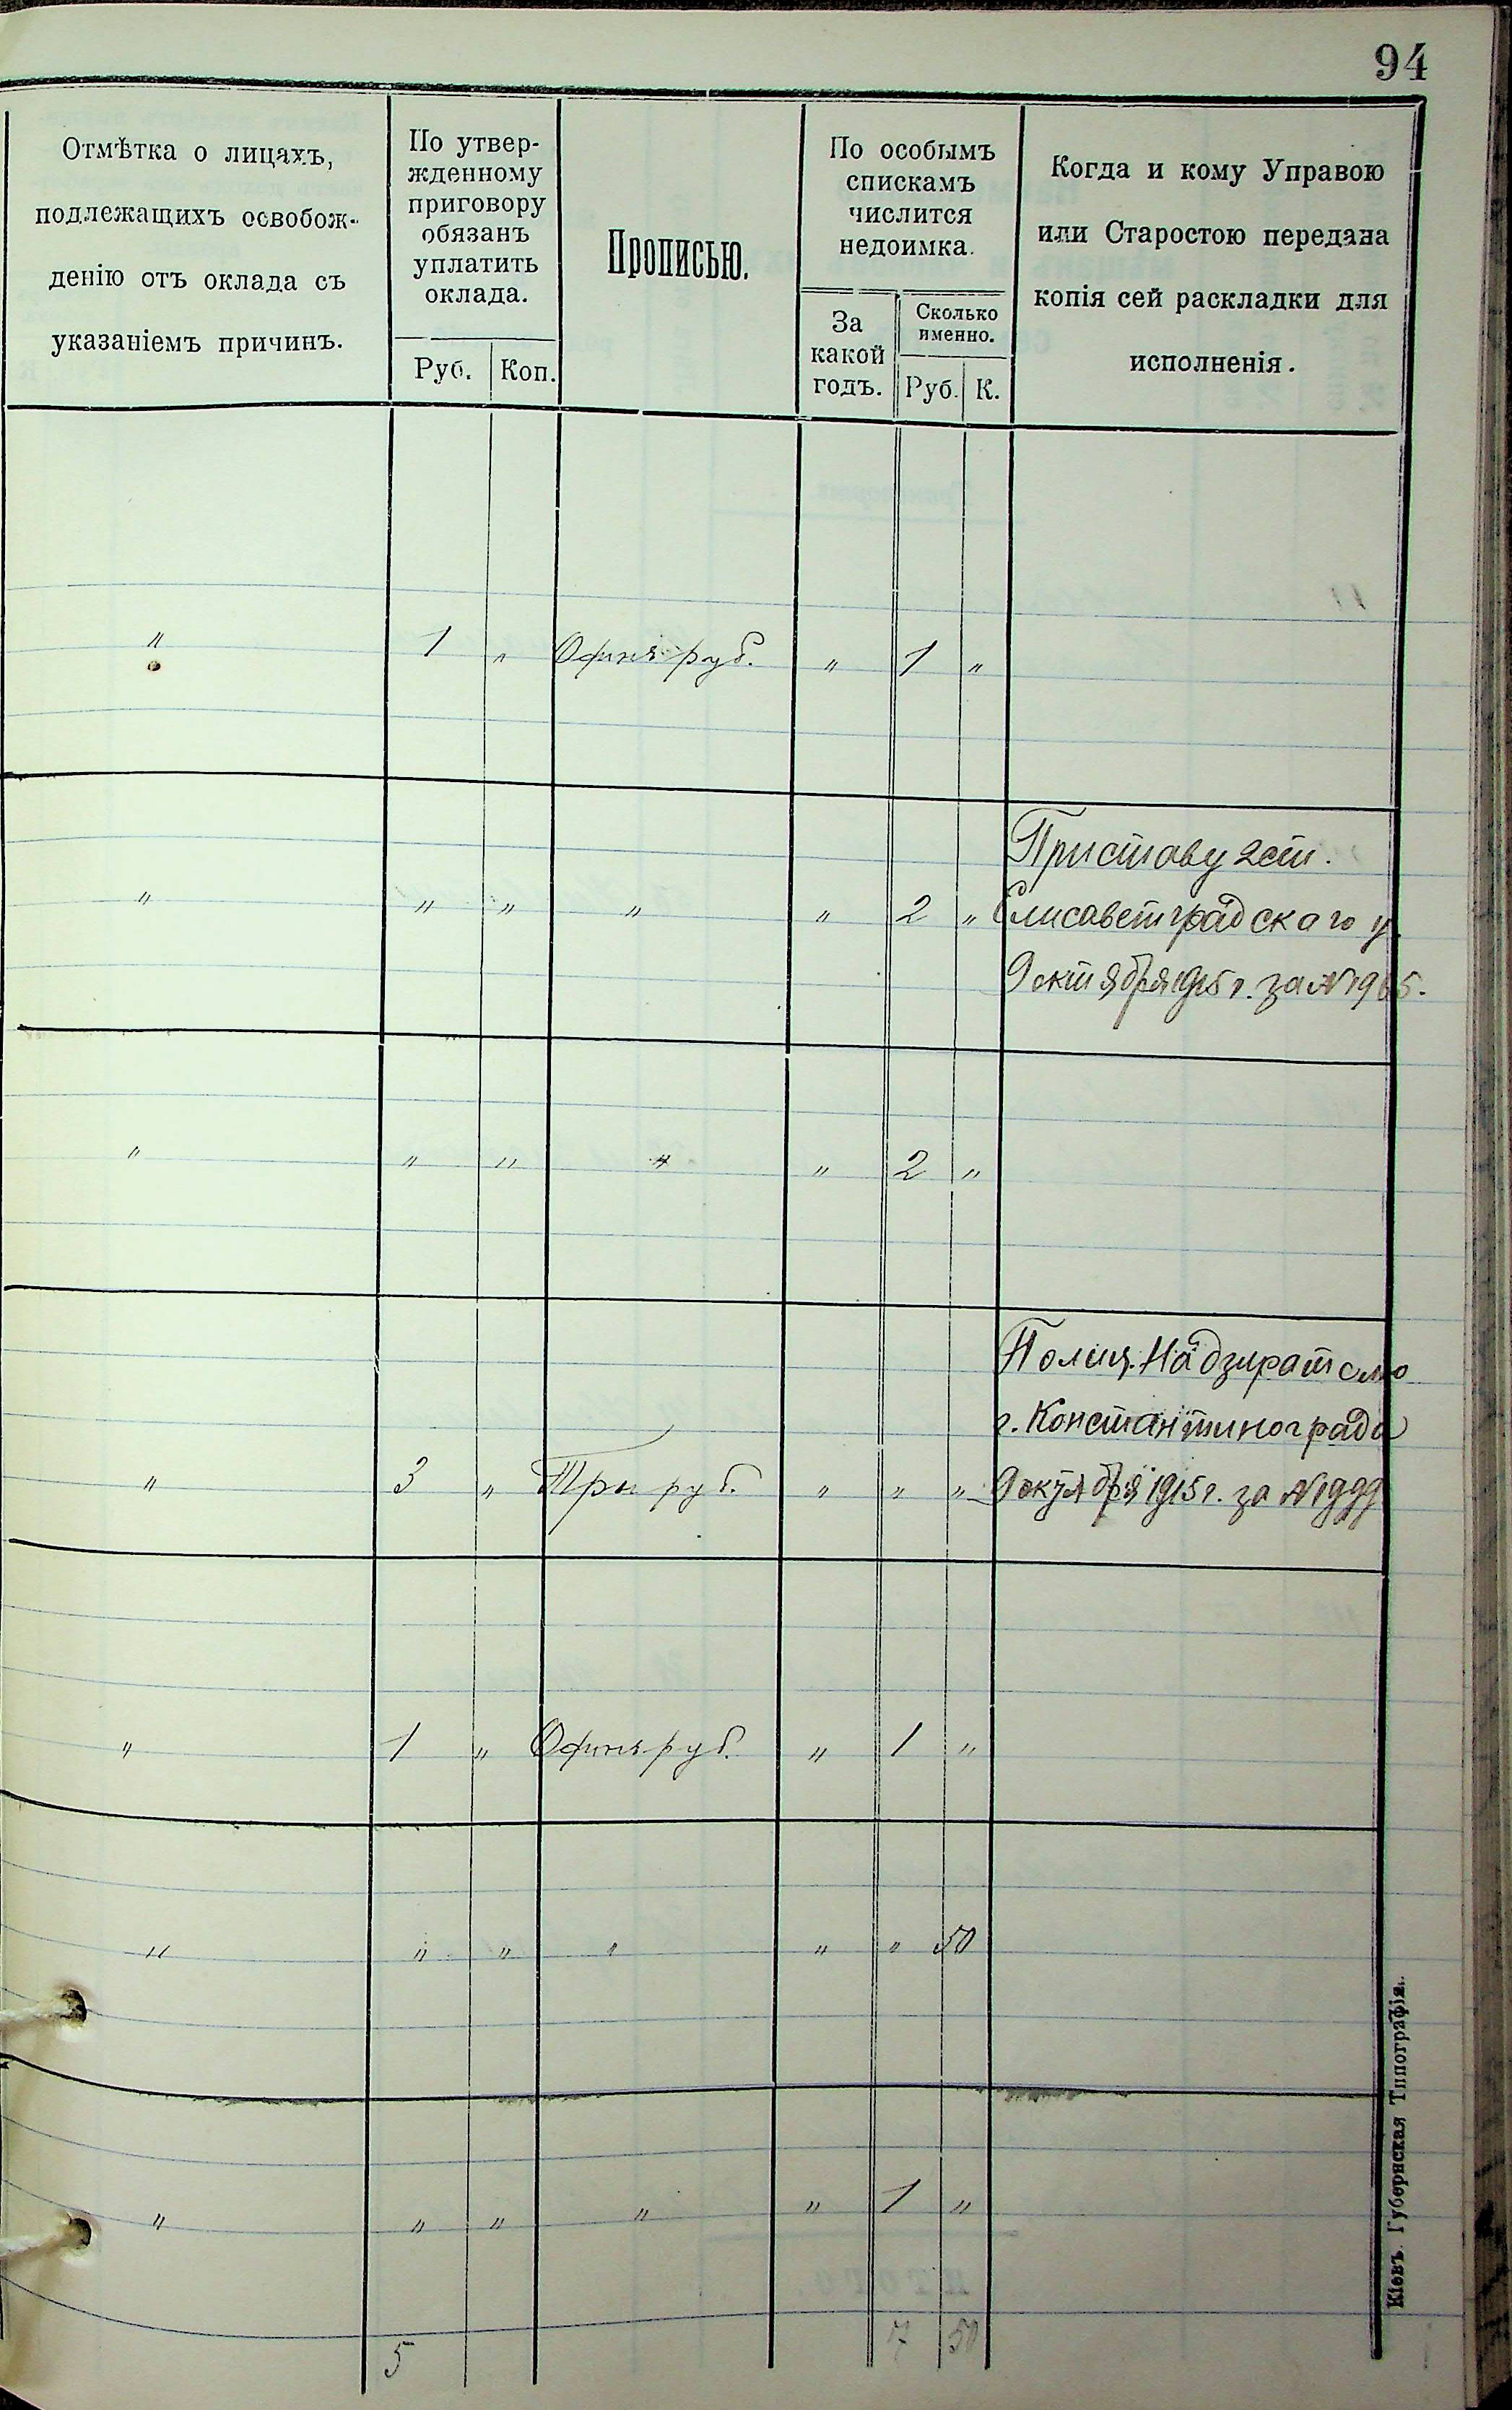 94
Отмѣтка о лицахъ,
подлежащихъ освобож-
денію отъ оклада съ
указаніемъ причинъ.
По утвер-
жденному
приговору
обязанъ
уплатить
оклада.
Руб. Коп.
Прописью.
По особымъ
спискамъ
числится
недоимка.
За
какой
годъ.
Сколько
именно.
Руб. К.
Когда и кому Управою
или Старостою передана
копія сей раскладки для
исполненія.
" 1 " Одинъ руб. " 1 "
Приставу 2 ст.
" " " " " 2 " Елисаветградскаго у.
9 октября 1915 г. за № 1965.
" " " " " 2 "
Полиц. Надзирателю
г. Константинограда
" 3 " Три руб. " " " 9 октября 1915 г. за № 1999
" 1 " Одинъ руб. " 1 "
" " " " " " 50
" " " " " 1 "
5 7 50
Кіевъ. Губернская Типографія.